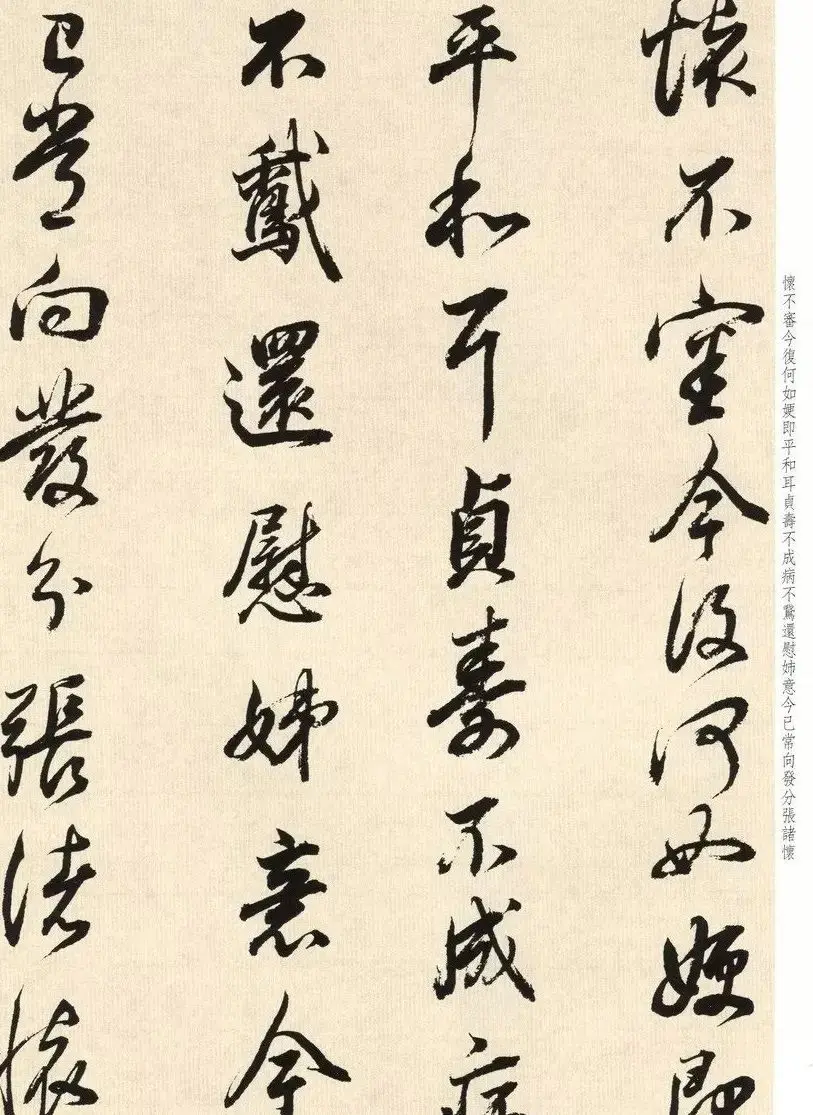 懷不審今復何如媆即
平和耳貞壽不成病
不驚還慰姊意今
已常向發分張諸懷
懷不審今復何如媆即平和耳貞壽不成病不驚還慰姊意今已常向發分張諸懷